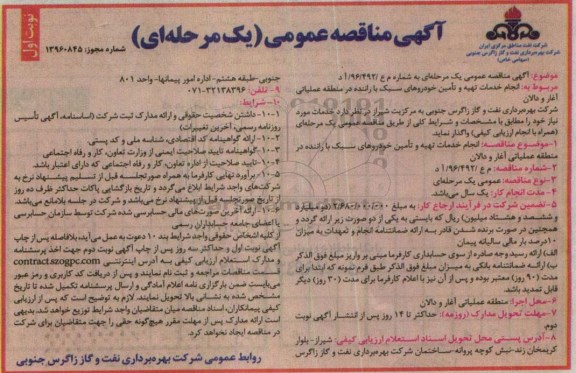 نوبت اول
آگهی مناقصه عمومی (یک مرحله‌ای)
شماره مجوز: ۱۳۹۶۰۸۴۵
شرکت نفت مناطق مرکزی ایران
شرکت بهره‌برداری نفت و گاز زاگرس جنوبی
(سهامی خاص)
موضوع: آگهی مناقصه عمومی یک مرحله‌ای به شماره م ع /۹۶/۴۹۲/ا
مربوط به: انجام خدمات تهیه و تأمین خودروهای سبک با راننده در منطقه عملیاتی
آغار و دالان
شرکت بهره‌برداری نفت و گاز زاگرس جنوبی به مرکزیت شیراز در نظر دارد خدمات مورد
نیاز خود را مطابق با مشخصات و شرایط کلی از طریق مناقصه عمومی یک مرحله‌ای
(همراه با انجام ارزیابی کیفی) واگذار نماید.
۱-موضوع مناقصه: انجام خدمات تهیه و تأمین خودروهای سبک با راننده در
منطقه عملیاتی آغار و دالان
۲-شماره مناقصه: م ع /۹۶/۴۹۲/ا
۳-نوع مناقصه: عمومی یک مرحله‌ای
۴- مدت انجام کار: یک سال می‌باشد.
۵-تضمین شرکت در فرآیند ارجاع کار: به مبلغ ۲/۶۸۰/۰۰۰/۰۰۰ (دو میلیارد
و ششصد و هشتاد میلیون) ریال که بایستی به یکی از دو صورت زیر ارائه گردد و
همچنین در صورت برنده شدن قادر به ارائه ضمانتنامه انجام و تعهدات به میزان
۱۰درصد بار مالی سالیانه پیمان
الف) ارائه رسید وجه صادره از سوی حسابداری کارفرما مبنی بر واریز مبلغ فوق الذکر
ب) ارائه ضمانتنامه بانکی به میزان مبلغ فوق الذکر طبق فرم نمونه که ابتدا برای
مدت (۹۰ روز) معتبر بوده و پس از آن نیز با اعلام کارفرما برای مدت (۳۰ روز) دیگر
قابل تمدید باشد.
۶-محل اجرا: منطقه عملیاتی آغار و دالان
۷-مهلت تحویل مدارک (روزمه): حداکثر تا ۱۴ روز پس از انتشار آگهی نوبت
دوم.
۸-آدرس پستی محل تحویل اسناد استعلام ارزیابی کیفی: شیراز- بلوار
کریمخان زند-نبش کوچه پروانه-ساختمان شرکت بهره‌برداری نفت و گاز زاگرس
جنوبی-طبقه هشتم-اداره امور پیمانها- واحد ۸۰۱
۹- تلفن: ۳۲۱۳۸۳۹۶-۰۷۱
۱۰-شرایط:
۱-۱۰- داشتن شخصیت حقوقی و ارائه مدارک ثبت شرکت (اساسنامه، آگهی تأسیس
روزنامه رسمی، آخرین تغییرات)
۲-۱۰-ارائه گواهینامه کد اقتصادی، شناسه ملی و کد پستی.
۳-۱۰-گواهینامه تایید صلاحیت ایمنی از وزارت تعاون، کار و رفاه اجتماعی
۴-۱۰-تایید صلاحیت از اداره تعاون، کار و رفاه اجتماعی که دارای اعتبار باشد.
۵-۱۰-برآورد نهایی کارفرما به همراه صورتجلسه قبل از تسلیم پیشنهاد نرخ به
شرکت‌های واجد شرایط ابلاغ می‌گردد و تاریخ بازگشایی پاکات حداکثر ظرف ده روز
از تاریخ صورتجلسه قبل از پیشنهاد نرخ می‌باشد و شرکت در جلسه بلامانع می‌باشد.
۶-۱۰- ارائه آخرین صورت‌های مالی حسابرسی شده شرکت توسط سازمان حسابرسی
یا اعضای جامعه حسابداران رسمی
از کلیه اشخاص حقوقی واجد شرایط بند ۱۰ دعوت به عمل می‌آید، بلافاصله پس از چاپ
آگهی نوبت اول و حداکثر سه روز پس از چاپ آگهی نوبت دوم جهت اخذ پرسشنامه
و مدارک استعلام ارزیابی کیفی به آدرس اینترنتی contract.szogpc.com
قسمت مناقصات مراجعه و ثبت نام نمایند و پس از دریافت کد کاربری و رمز عبور
می‌بایست ضمن بارگزاری نامه اعلام آمادگی و ارسال پرسشنامه تکمیل شده تا تاریخ
مشخص شده به نشانی بالا تحویل نمایند. لازم به توضیح است که پس از ارزیابی
کیفی پیمانکاران، اسناد مناقصه میان متقاضیان واجد شرایط توزیع خواهد شد. بدیهی
است ارائه مدارک پس از مهلت مقرر هیچ‌گونه حقی را جهت متقاضیان برای شرکت
در مناقصه ایجاد نخواهد کرد.
روابط عمومی شرکت بهره‌برداری نفت و گاز زاگرس جنوبی